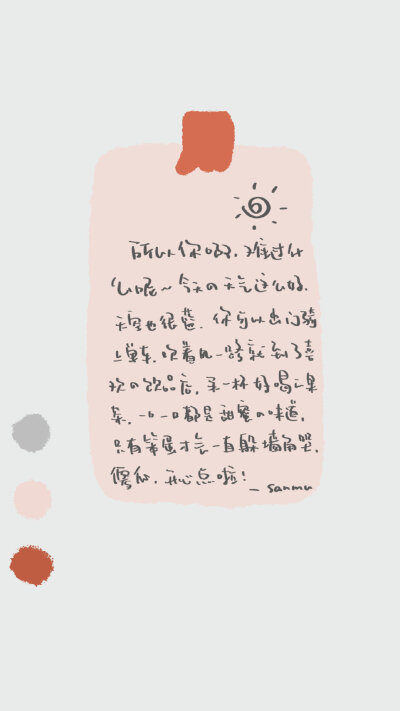 所以你啊，难过什
么呢～今天の天气这么好，
天空也很蓝，你可以出门骑
上单车，吹着风一路就到了喜
欢の饮品店，来一杯好喝の果
茶，一口一口都是甜蜜の味道，
只有笨蛋才会一直躲墙角哭，
傻瓜，开心点啦！
— sanmu